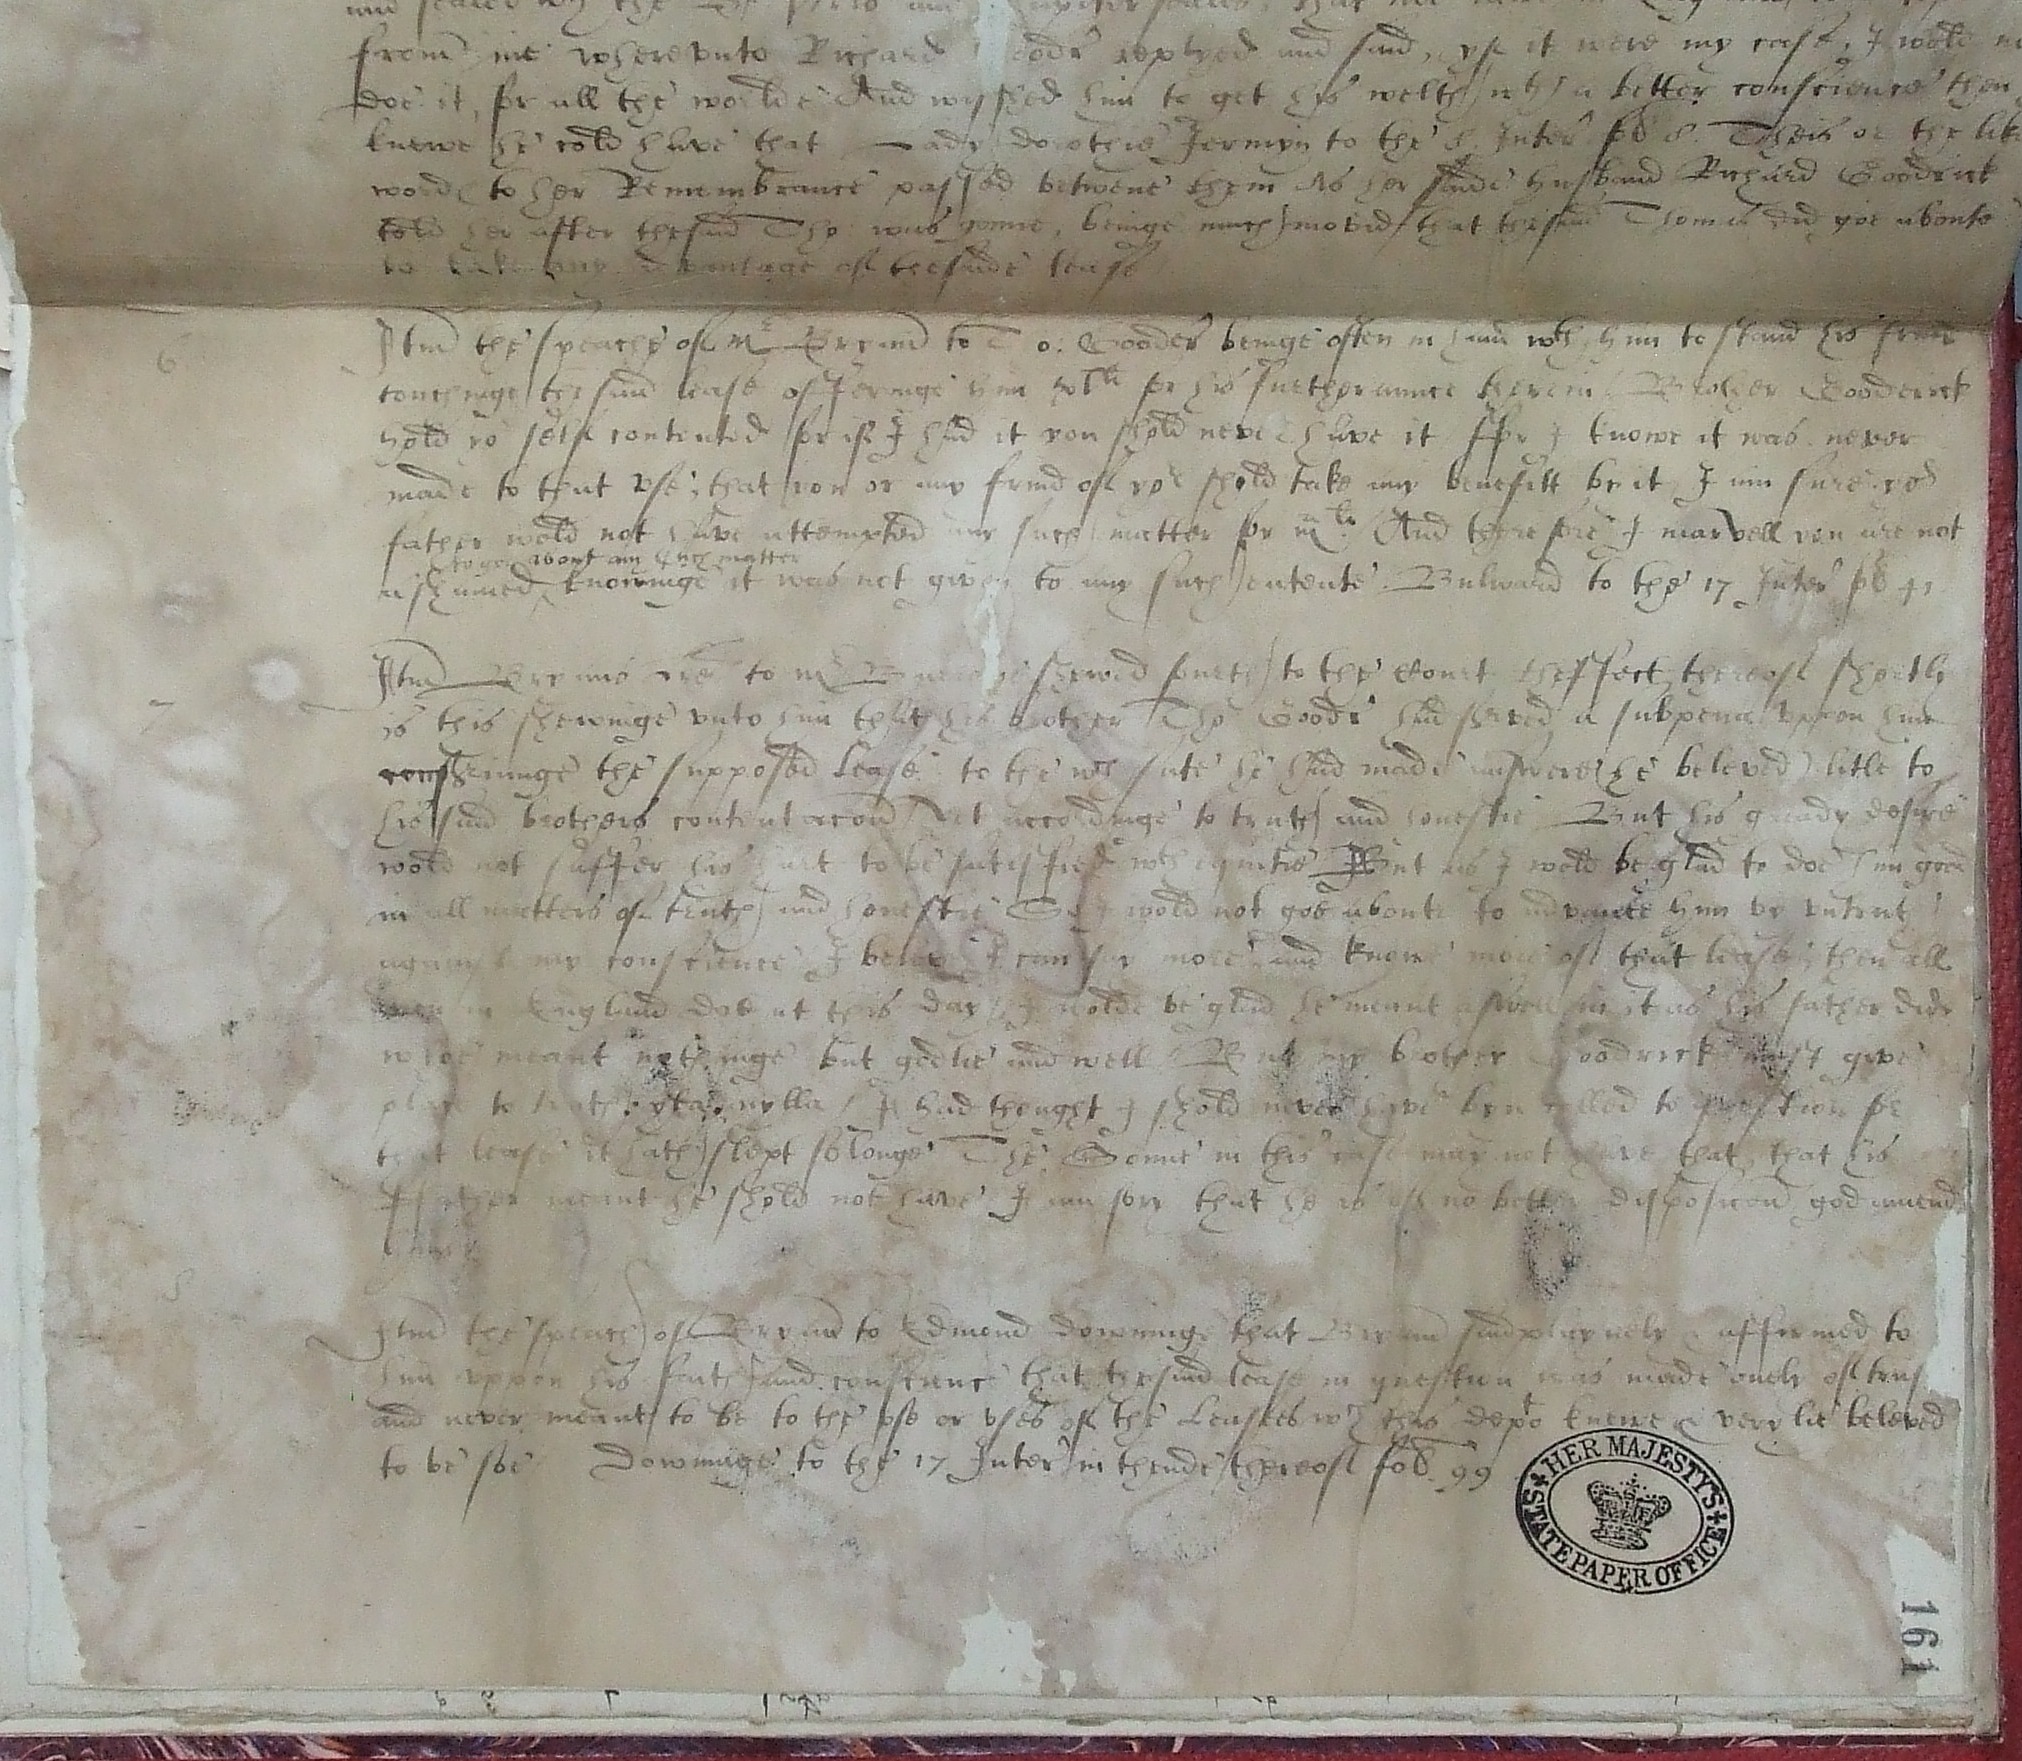 from me wherevnto Richard Goodr replyed and said, yf it were my case, I wold
doe it, for all the worlde And wysshed him to get his welth wth a better conscience then
knewe he cold have that Lady dorothie Jermyn to the 8 Inter fo 8. Theis or the like
wordes to her Remembrance passed betwene them As her saide husband Richard Goodrick
told her after thesaid Tho: was gonne, beinge much moved that thesaid Thomas did goe aboute
to take any advantage of thesaide lease
6 Itm the speache of Mr Bryand to Tho: Gooder beinge often in hand wth him to stand his frend
touchinge thesaid lease offeringe him xlli for his furtherannce therein Brother Gooderick
hold yor self contented for if I had it you shold never have it ffor I knowe it was never
made to that vse, that you or any frind of yors shold take any benefitt by it, I am sure yor
father wold not have attempted any such matter for mli And therefore I marvell you are not
to goe about any such matter
ashamed knowinge it was not given to any such entente. Bulward to the 17 Inter fo 41
7 Itm Bryans lre to Mr shewed fourth to the Court theffect thereof shortly
is this shewinge vnto him that his brother Tho Goodr had served a subpena vppon him
the supposed Lease, to the wch sute he had made answere (he beleved) litle to
his said brothers contentacon yet accordinge to truth and honestie But his gready desire
wold not suffer his hart to be satisfied wth equitie But as I wold be glad to doe him good
in all matters of truth and honestie So I wold not goe aboute to advance him by vntruth
against my conscience I beleve I can say more and knowe more of that lease, then all
men in England doe at this day, I wolde be glad he meant aswell in it as his father did
whoe meant nothinge but godlie and well But my brother Goodrick must give
place to truth I had thought I shold never have byn called to question for
that lease it hath slept so longe The Sonne in this case may not have that, that his
ffather meant he shold not have I am sory that he is of no better disposicon god amend
him
8 Itm the speach of Bryand to Edmond Downinge that Bryand said playnely & affirmed to
him vppon his faith and conscience that thesaid lease in question was made onely of trust
and never meant to be to the vse or vses of the Leasees wch this depot knewe & verylie beleved
to be soe Downinge to the 17 Inter in thende thereof fol. 99
HER MAJESTY'S STATE PAPER OFFICE
161